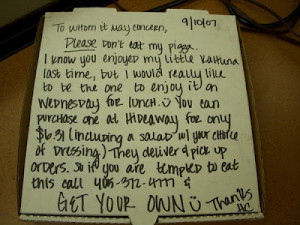 9/10/07
To whom it may concern,
Please Don't eat my pizza.
I know you enjoyed my little Kahuna
last time, but I would really like
to be the one to enjoy it on
Wednesday for lunch. You can
purchase one at Hideaway for only
$6.31 (including a salad w/ your choice
of Dressing) They deliver & pick up
orders. So if you are tempted to eat
this call 405-372-4777 &
GET YOUR OWN Thanks
HC